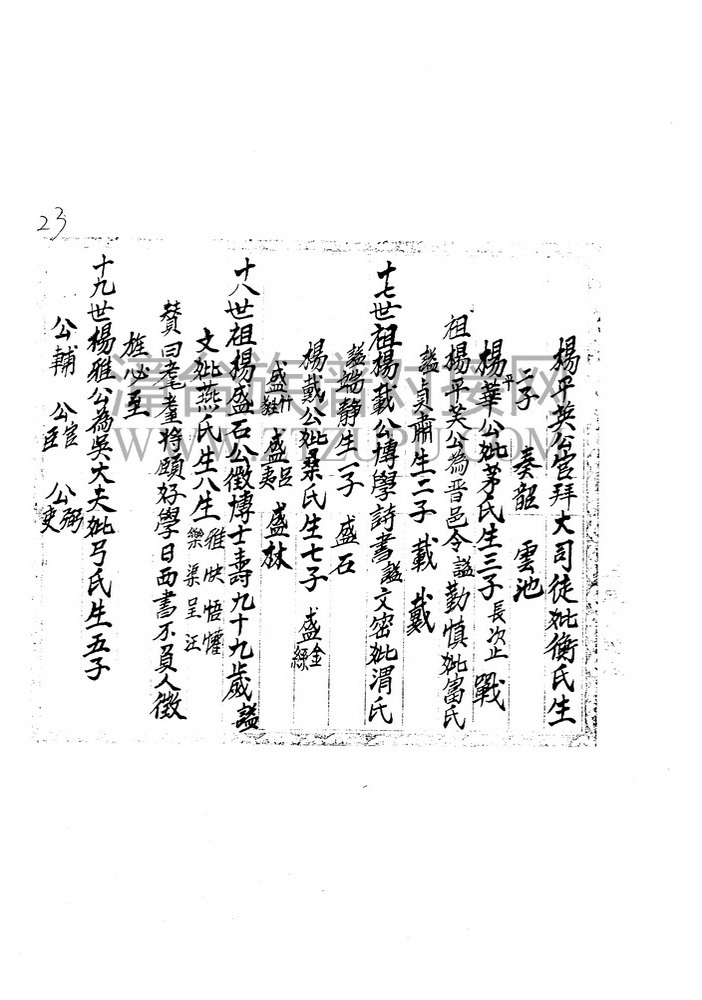 23
楊平英公官拜大司徒妣衡氏生
二子 奏韶 雲池
楊平華公妣茅氏生三子長次止 戰
祖楊平英公為晋邑令謚勤慎妣富氏
謚貞肅生二子 載 戴
十七世祖楊載公博學詩書謚文密妣渭氏
謚端静生一子 盛石
楊戴公妣桑氏生七子 盛金 綠
盛什 盛足 夷 盛林
十八世祖楊盛石公徵博士壽九十九歲謚
文妣燕氏生八生 雅 快 悟 懽 樂 渠 呈 汪
贊曰耄耋將頤好學日西書不負人徵
旌必至
十九世楊雅公為吳大夫妣弓氏生五子
公輔 公官 臣 公弼 吏
漳台族谱对接网
WWW.ZTZUPU.COM